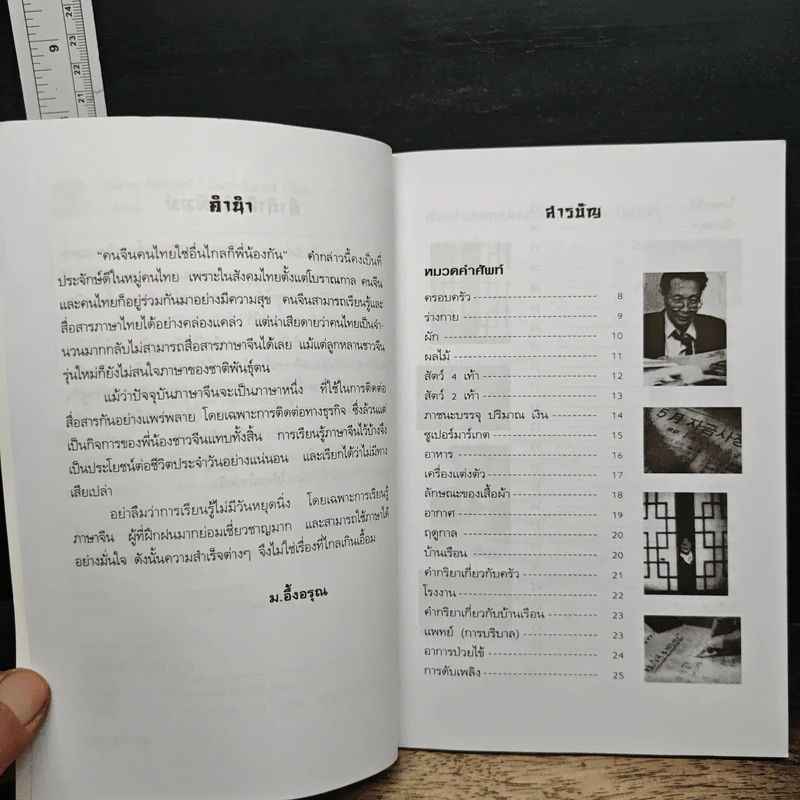 คำนำ
"คนจีนคนไทยใช่อื่นไกลก็พี่น้องกัน" คำกล่าวนี้คงเป็นที่
ประจักษ์ดีในหมู่คนไทย เพราะในสังคมไทยตั้งแต่โบราณกาล คนจีน
และคนไทยก็อยู่ร่วมกันมาอย่างมีความสุข คนจีนสามารถเรียนรู้และ
สื่อสารภาษาไทยได้อย่างคล่องแคล่ว แต่น่าเสียดายว่าคนไทยเป็นจำ-
นวนมากกลับไม่สามารถสื่อสารภาษาจีนได้เลย แม้แต่ลูกหลานชาวจีน
รุ่นใหม่ก็ยังไม่สนใจภาษาของชาติพันธุ์ตน
แม้ว่าปัจจุบันภาษาจีนจะเป็นภาษาหนึ่ง ที่ใช้ในการติดต่อ
สื่อสารกันอย่างแพร่หลาย โดยเฉพาะการติดต่อทางธุรกิจ ซึ่งล้วนแต่
เป็นกิจการของพี่น้องชาวจีนแทบทั้งสิ้น การเรียนรู้ภาษาจีนไว้บ้างจึง
เป็นประโยชน์ต่อชีวิตประจำวันอย่างแน่นอน และเรียกได้ว่าไม่มีทาง
เสียเปล่า
อย่าลืมว่าการเรียนรู้ไม่มีวันหยุดนิ่ง โดยเฉพาะการเรียนรู้
ภาษาจีน ผู้ที่ฝึกฝนมากย่อมเชี่ยวชาญมาก และสามารถใช้ภาษาได้
อย่างมั่นใจ ดังนั้นความสำเร็จต่างๆ จึงไม่ใช่เรื่องที่ไกลเกินเอื้อม
ม.อึ้งอรุณ
สารบัญ
หมวดคำศัพท์
ครอบครัว 8
ร่างกาย 9
ผัก 10
ผลไม้ 11
สัตว์ 4 เท้า 12
สัตว์ 2 เท้า 13
ภาชนะบรรจุ ปริมาณ เงิน 14
ซูเปอร์มาร์เกต 15
อาหาร 16
เครื่องแต่งตัว 17
ลักษณะของเสื้อผ้า 18
อากาศ 19
ฤดูกาล 20
บ้านเรือน 20
คำกริยาเกี่ยวกับครัว 21
โรงงาน 22
คำกริยาเกี่ยวกับบ้านเรือน 23
แพทย์ (การบริบาล) 23
อาการป่วยไข้ 24
การดับเพลิง 25